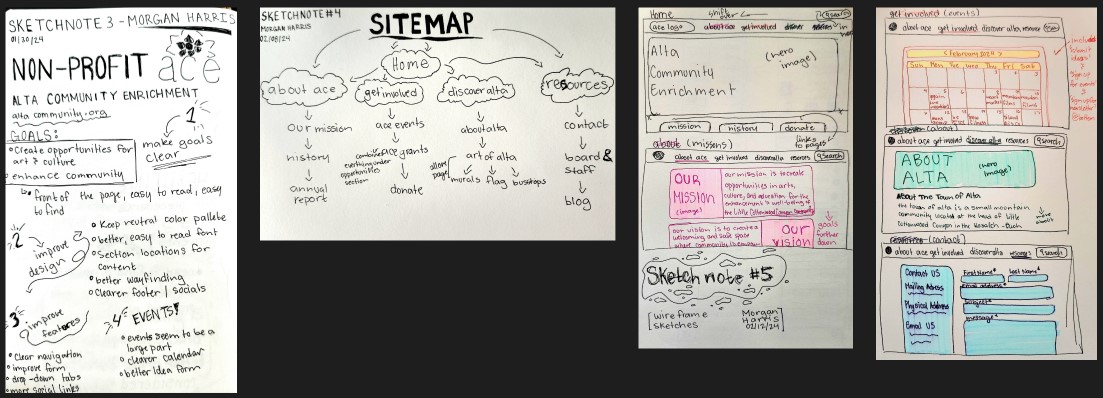 SKETCHNOTE 3 - MORGAN HARRIS
01/30/24
NON-PROFIT ace
ALTA COMMUNITY ENRICHMENT
alta community.org
GOALS:
Create opportunities for
art & culture
enhance community
1
make goals
clear
front of the page, easy to read, easy
to find
2
improve
design
Keep neutral color pallete
better, easy to read font
Section locations for
content
better wayfinding
Clearer footer / socials
3
improve
features
Clear navigation
improve form
drop-down tabs
more social links
4 EVENTS!
events seem to be a
large part
clearer calendar
better Idea form
SKETCHNOTE #4
MORGAN HARRIS
02/05/24
SITEMAP
Home
about ace
get involved
discover alta
resources
our mission
history
annual
report
ace events
ace grants
donate
combine
everything under
opportunities
section
about alta
art of alta
murals flag busstops
contact
board &
staff
blog
Home
shift
over
ace logo
about ace get involved discover
search
Alta
Community
Enrichment
(hero
image)
mission
history
donate
links
to pages
about (missions)
about ace get involved discover alta resources search
OUR
MISSION
(image)
our mission is to create
opportunities in arts,
culture, and education for the
enhancement & well-being of
the Little Cottonwood Canyon Community
our vision is to create a
welcoming and safe space
where community is
OUR
VISION
goals
further
down
Sketch note #5
wireframe
sketches
Morgan
Harris
02/12/24
get involved (events)
about ace get involved discover alta resources
< February 2024 >
Sun Mon Tue Wed Thu Fri Sat
(about)
about ace get involved discover alta resources search
ABOUT
ALTA
(hero
image)
About The Town of Alta
the town of alta is a small mountain
community located at the head of little
cottonwood Canyon in the Wasatch
(contact)
about ace get involved discover alta resources search
Contact US
Mailing Adress
Physical Address
Email US
First Name*
Last Name*
email address*
Subject*
message*